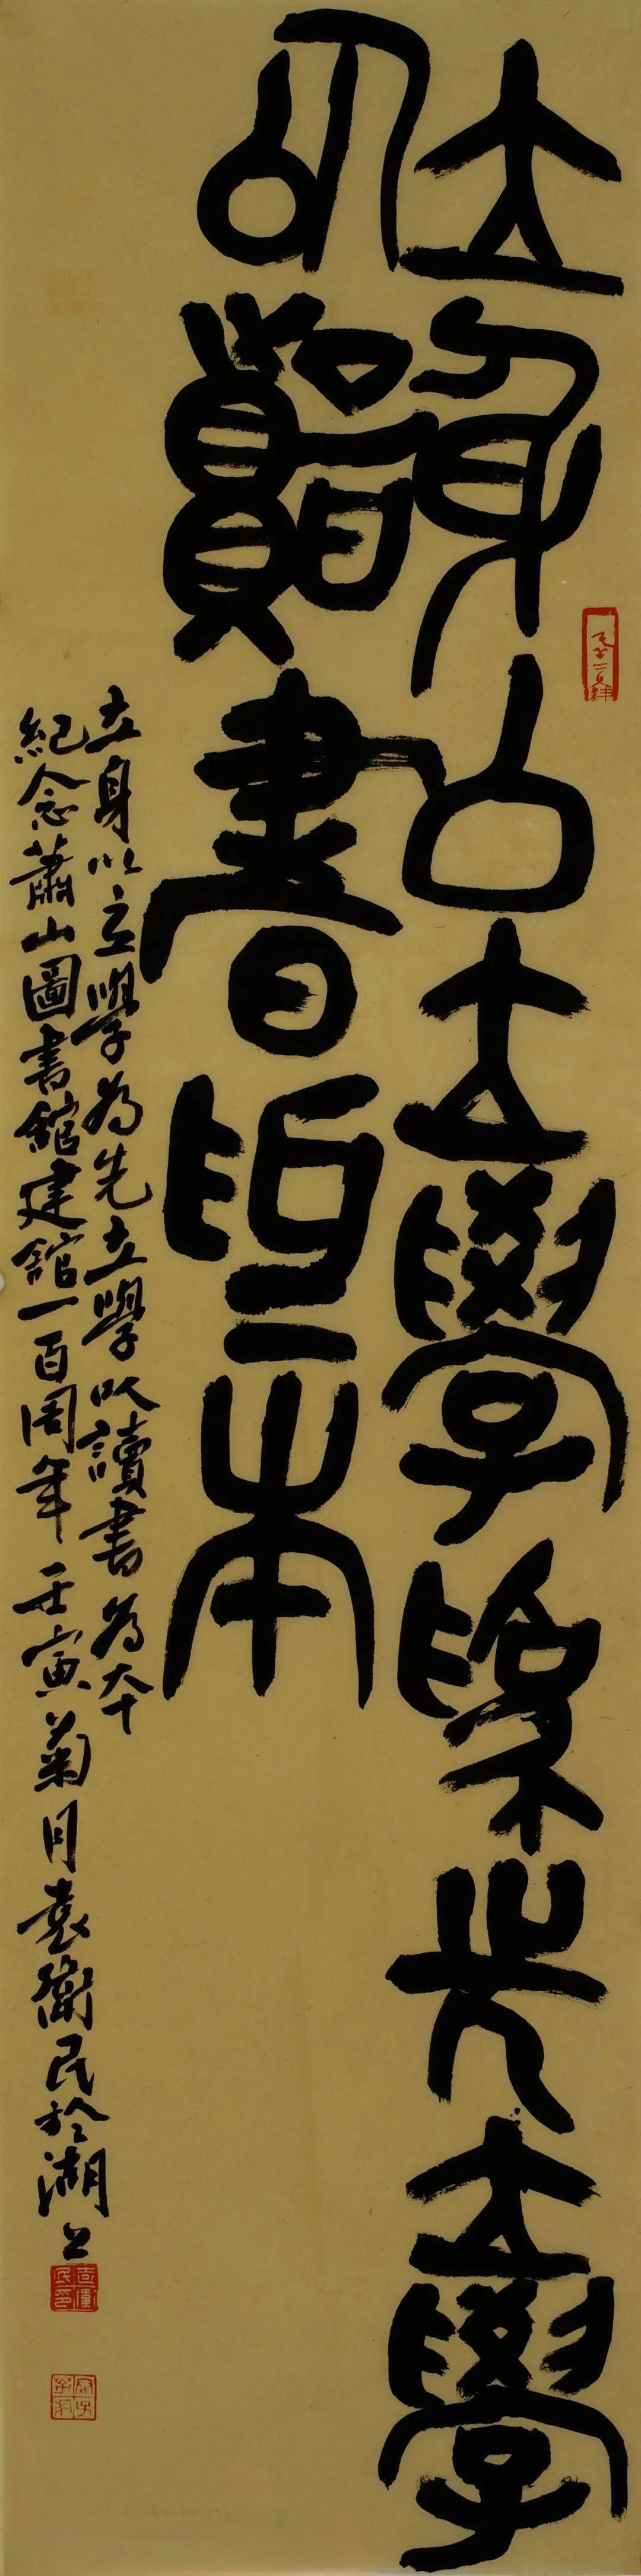 立身以立學為先立學
以讀書為本
立身以立學為先立學以讀書為本
紀念蕭山圖書館建館一百周年壬寅菊月袁衛民於湖上
袁衛民印